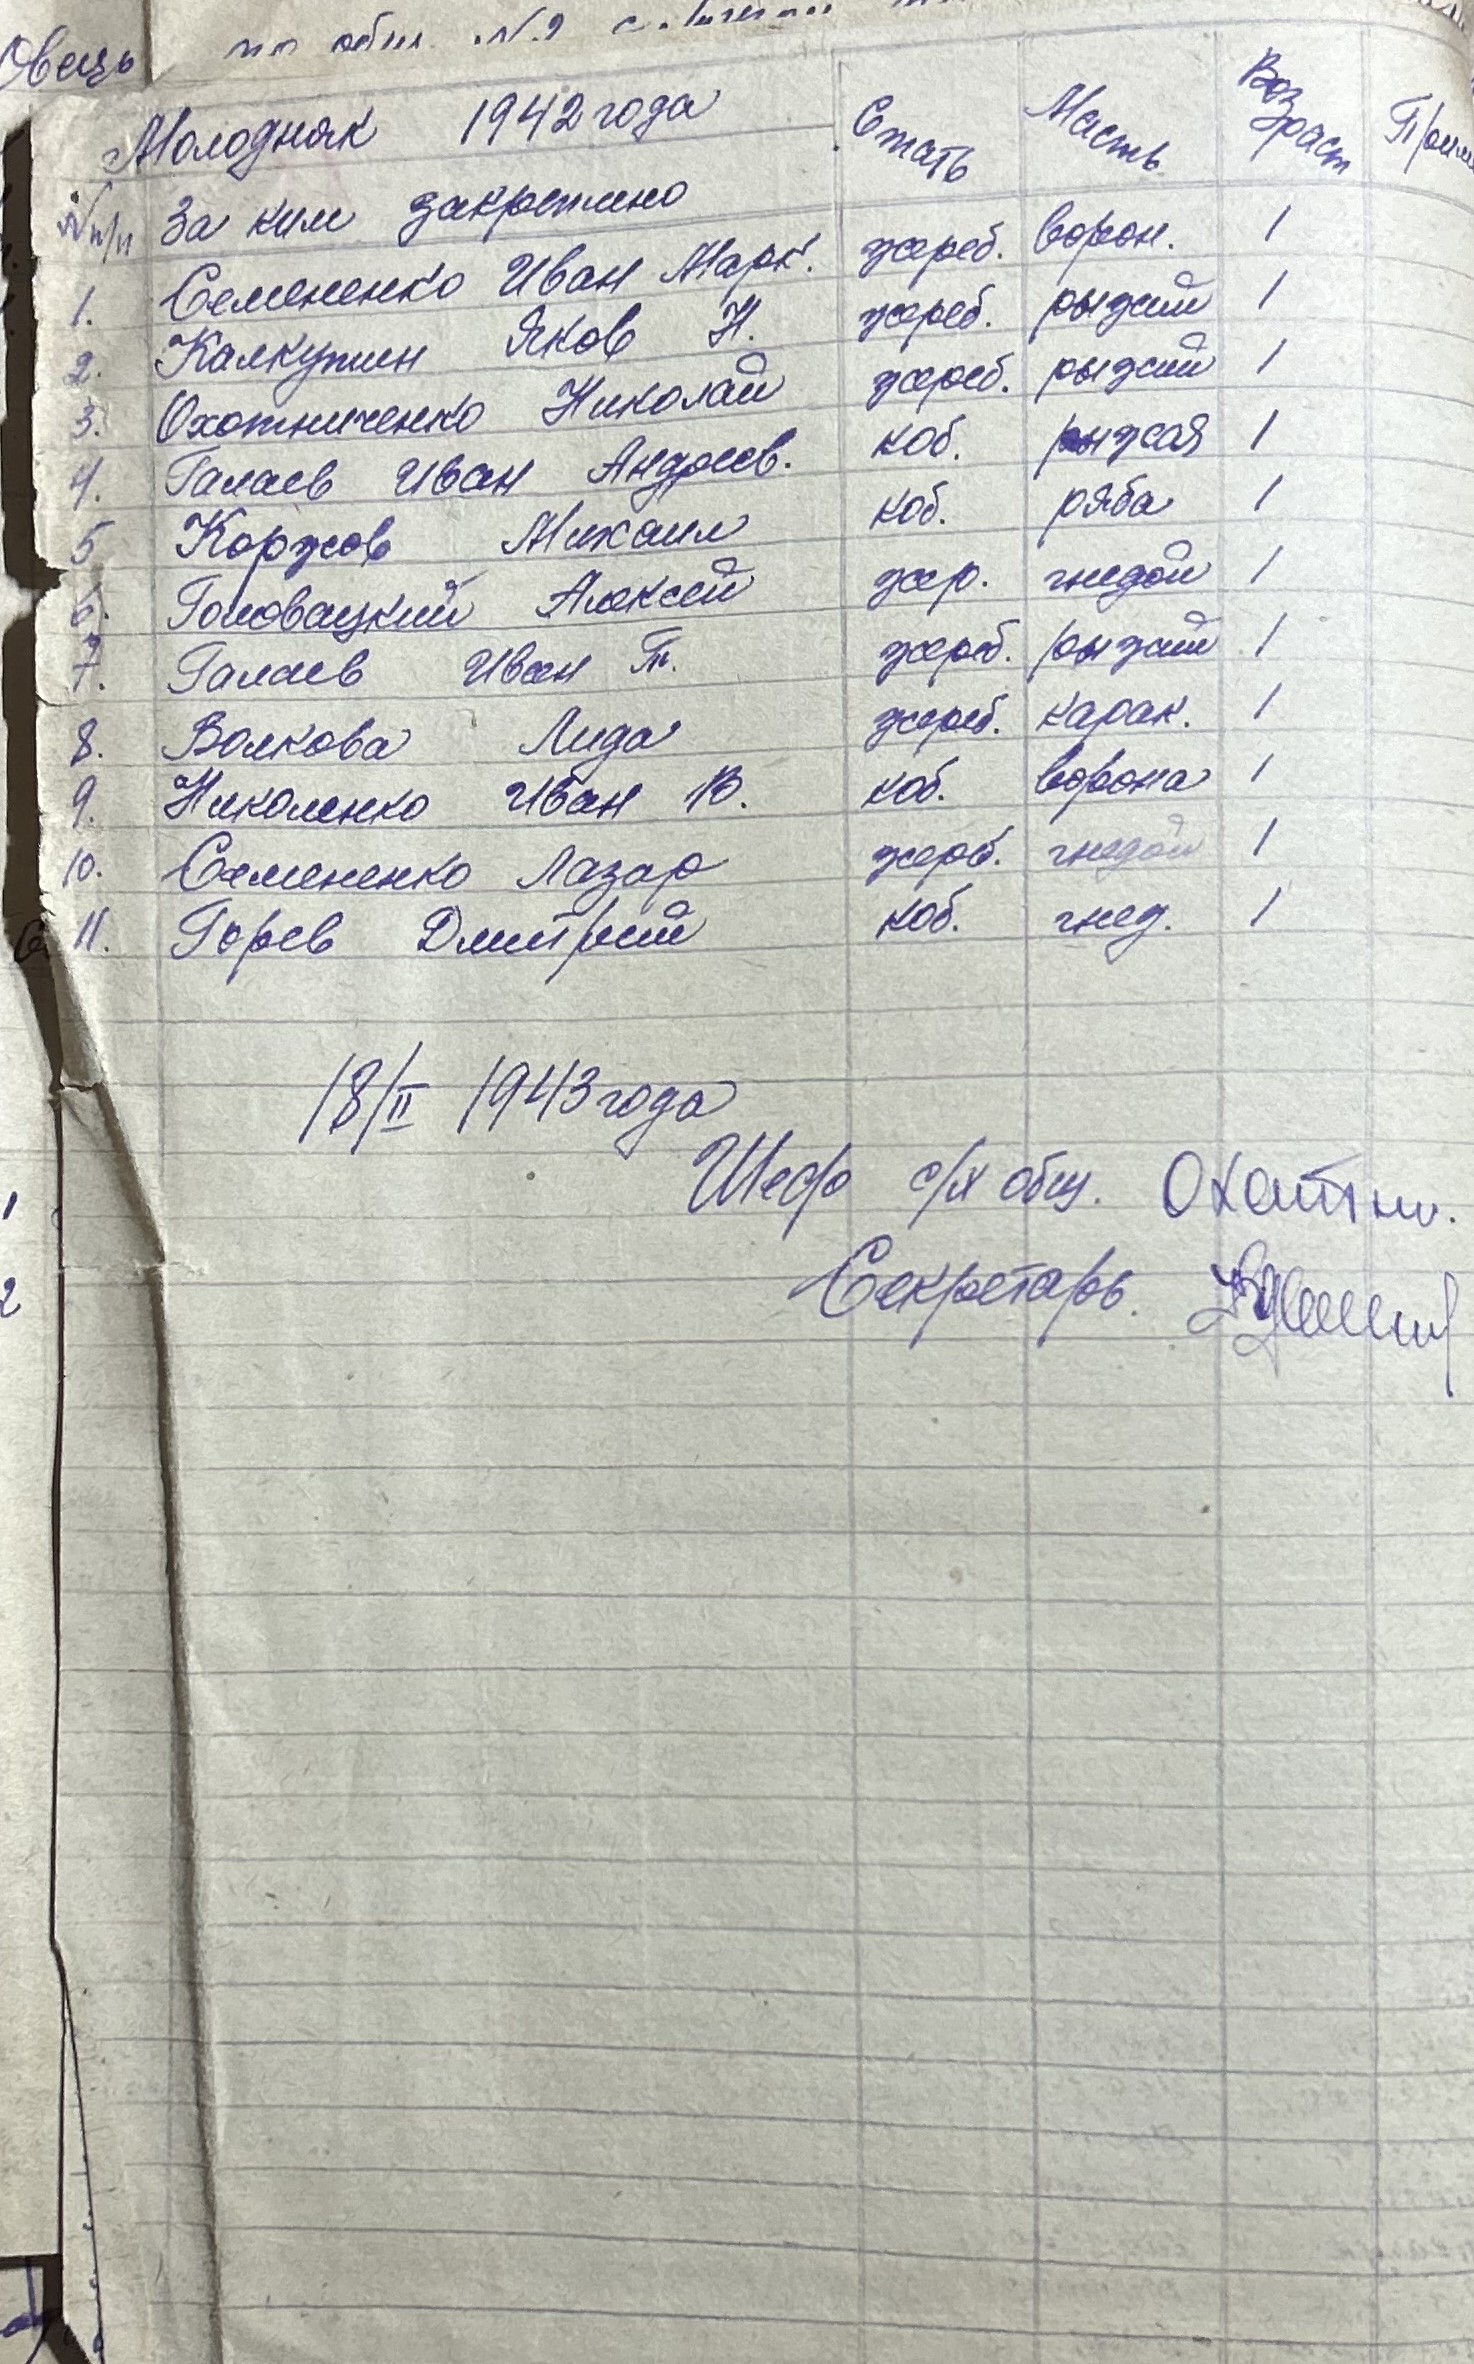 Овець
по общ. №9
Молодняк 1942 года Стать Масть Возраст Прим
№ п/п За ким закреплено
1. Семененко Иван Марк. жереб. ворон. 1
2. Калкутин Яков Н. жереб. рыжий 1
3. Охотниченко Николай жереб. рыжий 1
4. Галаев Иван Андреев. коб. рыжая 1
5 Коржов Михаил коб. ряба 1
6. Головацкий Алексей жер. гнедой 1
7. Галаев Иван Т. жереб. рыжий 1
8. Волкова Лида жереб. карак. 1
9. Николенко Иван В. коб. ворона 1
10. Семененко Лазар жереб. гнедой 1
11. Горев Дмитрий коб. гнед. 1
18/II 1943 года
Шеф с/х общ. Охотни.
Секретарь.
1
2